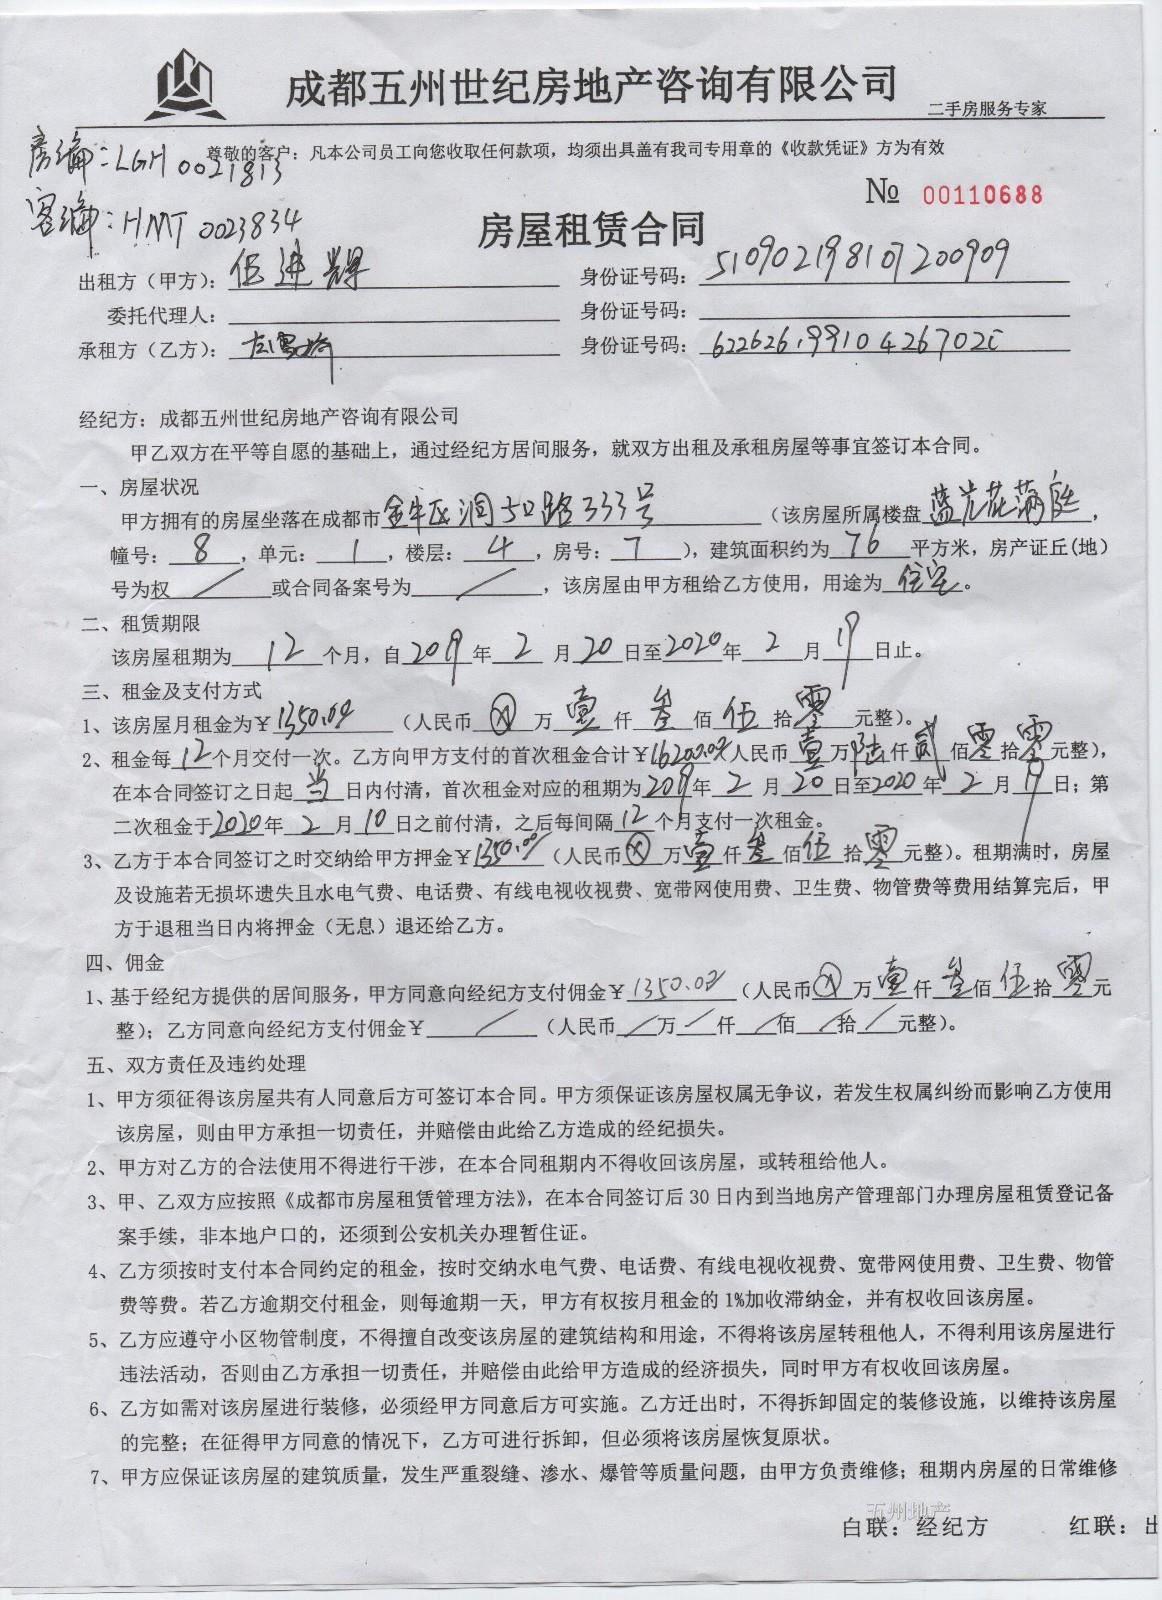 成都五州世纪房地产咨询有限公司
二手房服务专家
尊敬的客户：凡本公司员工向您收取任何款项，均须出具盖有我司专用章的《收款凭证》方为有效
房编：LGH 0021813
№ 00110688
客编：HMT 0023834
房屋租赁合同
出租方（甲方）： 伍进辉 身份证号码： 510902198107200909
委托代理人： 身份证号码：
承租方（乙方）： 身份证号码： 62262619910426702
经纪方：成都五州世纪房地产咨询有限公司
甲乙双方在平等自愿的基础上，通过经纪方居间服务，就双方出租及承租房屋等事宜签订本合同。
一、房屋状况
甲方拥有的房屋坐落在成都市金牛区洞子口路333号（该房屋所属楼盘蓝光花满庭，
幢号：8，单元：1，楼层：4，房号：7），建筑面积约为76平方米，房产证丘(地)
号为权／或合同备案号为／，该房屋由甲方租给乙方使用，用途为住宅。
二、租赁期限
该房屋租期为12个月，自2019年2月20日至2020年2月19日止。
三、租金及支付方式
1、该房屋月租金为￥1350.00（人民币ⓧ万壹仟叁佰伍拾零元整）。
2、租金每12个月交付一次。乙方向甲方支付的首次租金合计￥16200.00（人民币壹万陆仟贰佰零拾零元整），
在本合同签订之日起当日内付清，首次租金对应的租期为2019年2月20日至2020年2月19日；第
二次租金于2020年2月10日之前付清，之后每间隔12个月支付一次租金。
3、乙方于本合同签订之时交纳给甲方押金￥1350.00（人民币ⓧ万壹仟叁佰伍拾零元整）。租期满时，房屋
及设施若无损坏遗失且水电气费、电话费、有线电视收视费、宽带网使用费、卫生费、物管费等费用结算完后，甲
方于退租当日内将押金（无息）退还给乙方。
四、佣金
1、基于经纪方提供的居间服务，甲方同意向经纪方支付佣金￥1350.00（人民币ⓧ万壹仟叁佰伍拾零元
整）；乙方同意向经纪方支付佣金￥／（人民币／万／仟／佰／拾／元整）。
五、双方责任及违约处理
1、甲方须征得该房屋共有人同意后方可签订本合同。甲方须保证该房屋权属无争议，若发生权属纠纷而影响乙方使用
该房屋，则由甲方承担一切责任，并赔偿由此给乙方造成的经纪损失。
2、甲方对乙方的合法使用不得进行干涉，在本合同租期内不得收回该房屋，或转租给他人。
3、甲、乙双方应按照《成都市房屋租赁管理方法》，在本合同签订后30日内到当地房产管理部门办理房屋租赁登记备
案手续，非本地户口的，还须到公安机关办理暂住证。
4、乙方须按时支付本合同约定的租金，按时交纳水电气费、电话费、有线电视收视费、宽带网使用费、卫生费、物管
费等费。若乙方逾期交付租金，则每逾期一天，甲方有权按月租金的1%加收滞纳金，并有权收回该房屋。
5、乙方应遵守小区物管制度，不得擅自改变该房屋的建筑结构和用途，不得将该房屋转租他人，不得利用该房屋进行
违法活动，否则由乙方承担一切责任，并赔偿由此给甲方造成的经济损失，同时甲方有权收回该房屋。
6、乙方如需对该房屋进行装修，必须经甲方同意后方可实施。乙方迁出时，不得拆卸固定的装修设施，以维持该房屋
的完整；在征得甲方同意的情况下，乙方可进行拆卸，但必须将该房屋恢复原状。
7、甲方应保证该房屋的建筑质量，发生严重裂缝、渗水、爆管等质量问题，由甲方负责维修；租期内房屋的日常维修
五州地产
白联：经纪方 红联：出